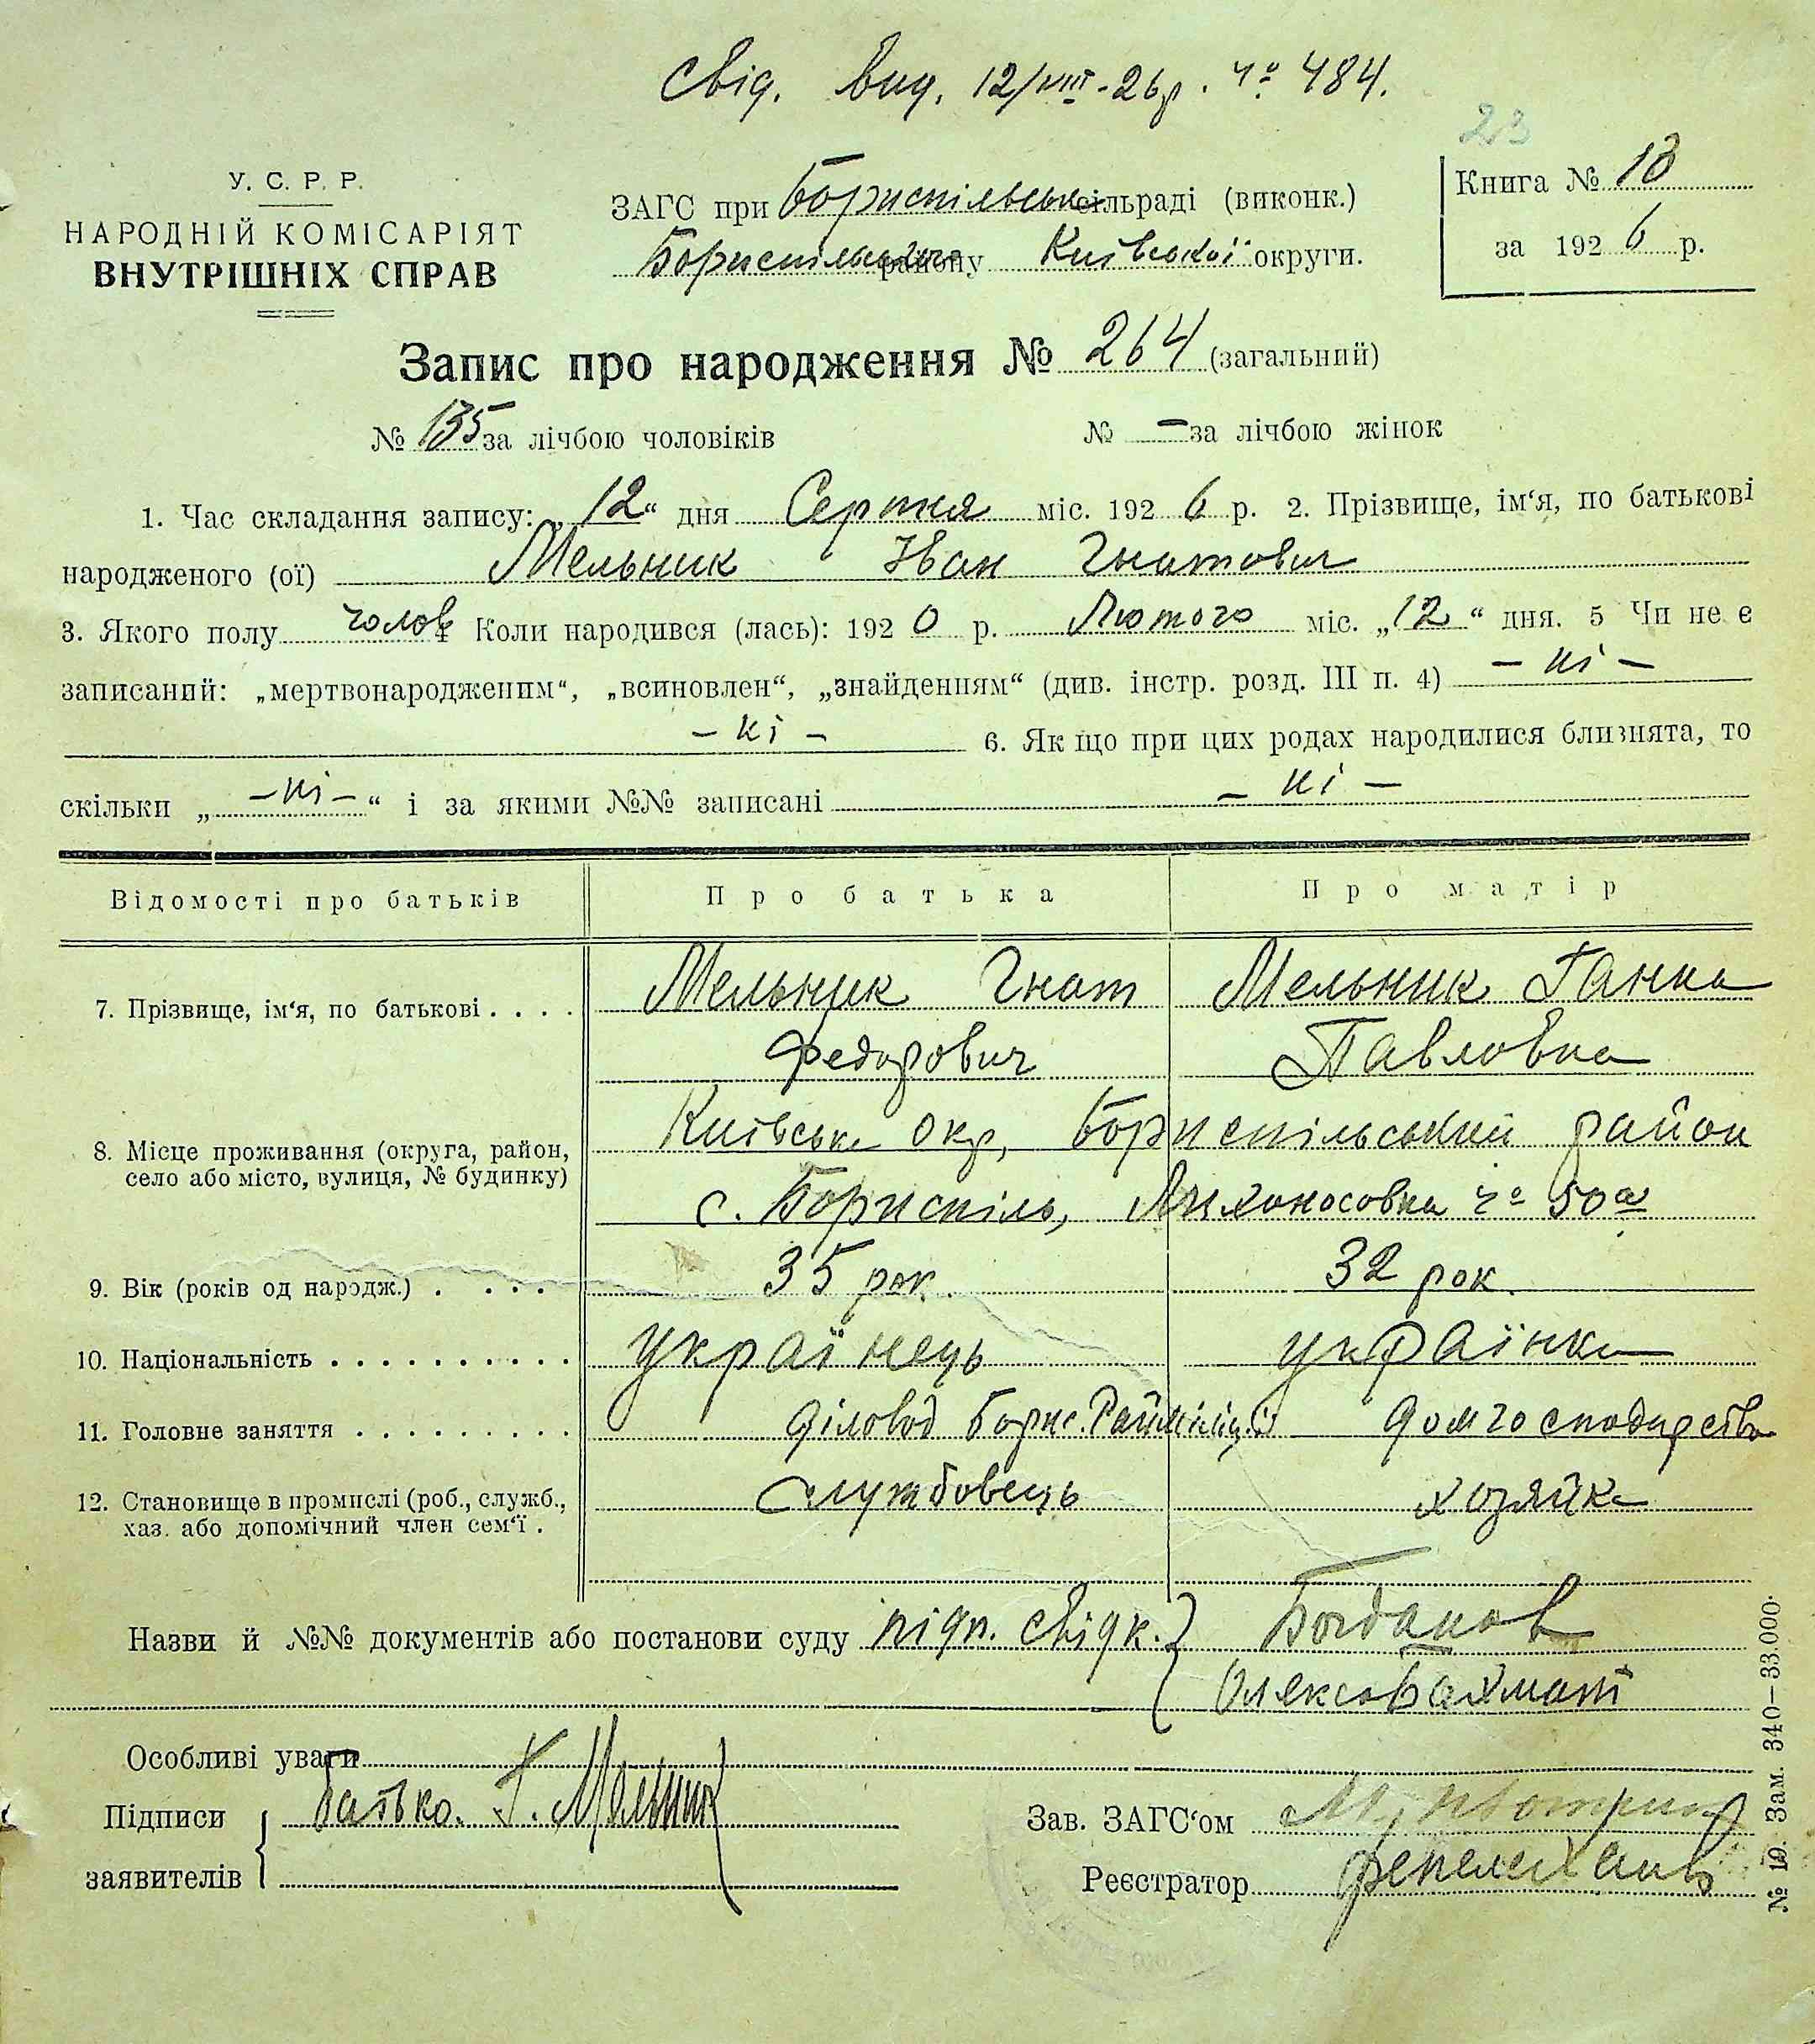 Свід. вид. 12/VIII-26р. чо 484.
23
У. С. Р. Р.
НАРОДНІЙ КОМІСАРІЯТ
ВНУТРІШНІХ СПРАВ
ЗАГС при Бориспільськ. сільраді (виконк.)
Бориспільського району Київської округи.
Книга № 13
за 1926 р.
Запис про народження № 264 (загальний)
№ 135 за лічбою чоловіків № — за лічбою жінок
1. Час складання запису: „12“ дня Серпня міс. 1926 р. 2. Прізвище, ім‘я, по батькові
народженого (ої) Мельник Іван Гнатович
3. Якого полу чолов. 4. Коли народився (лась): 1920 р. Лютого міс. „12“ дня. 5 Чи не є
записаний: „мертвонародженим“, „всиновлен“, „знайденням“ (див. інстр. розд. III п. 4) — ні —
— ні — 6. Як що при цих родах народилися близнята, то
скільки „— ні —“ і за якими №№ записані — ні —
Відомості про батьків Про батька Про матір
7. Прізвище, ім‘я, по батькові . . . . Мельник Гнат Мельник Ганна
Федорович Павловна
8. Місце проживання (округа, район, Київська окр, Бориспільський район
село або місто, вулиця, № будинку) с. Бориспіль, Лихоносовка чо 50а
9. Вік (років од народж.) . . . . 35 рок. 32 рок.
10. Національність . . . . . . . . . . українець українка
11. Головне заняття . . . . . . . . . Діловод Борис. Райміліції домгосподарство
12. Становище в промислі (роб., служб., Службовець хозяйка
хаз. або допомічний член сем‘ї .
Назви й №№ документів або постанови суду підп. свідк. } Богданов
Олекса Бахмат
Особливі уваги
Підписи заявителів { батько. Г. Мельник
Зав. ЗАГС‘ом
Реєстратор
№ 10. Зам. 340—33.000.